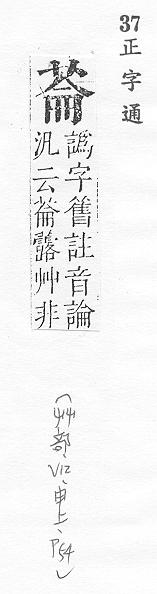 37正字通
菕
譌字舊註音論
汎云菕蘮艸非
(艸部、V12、申上、P54)